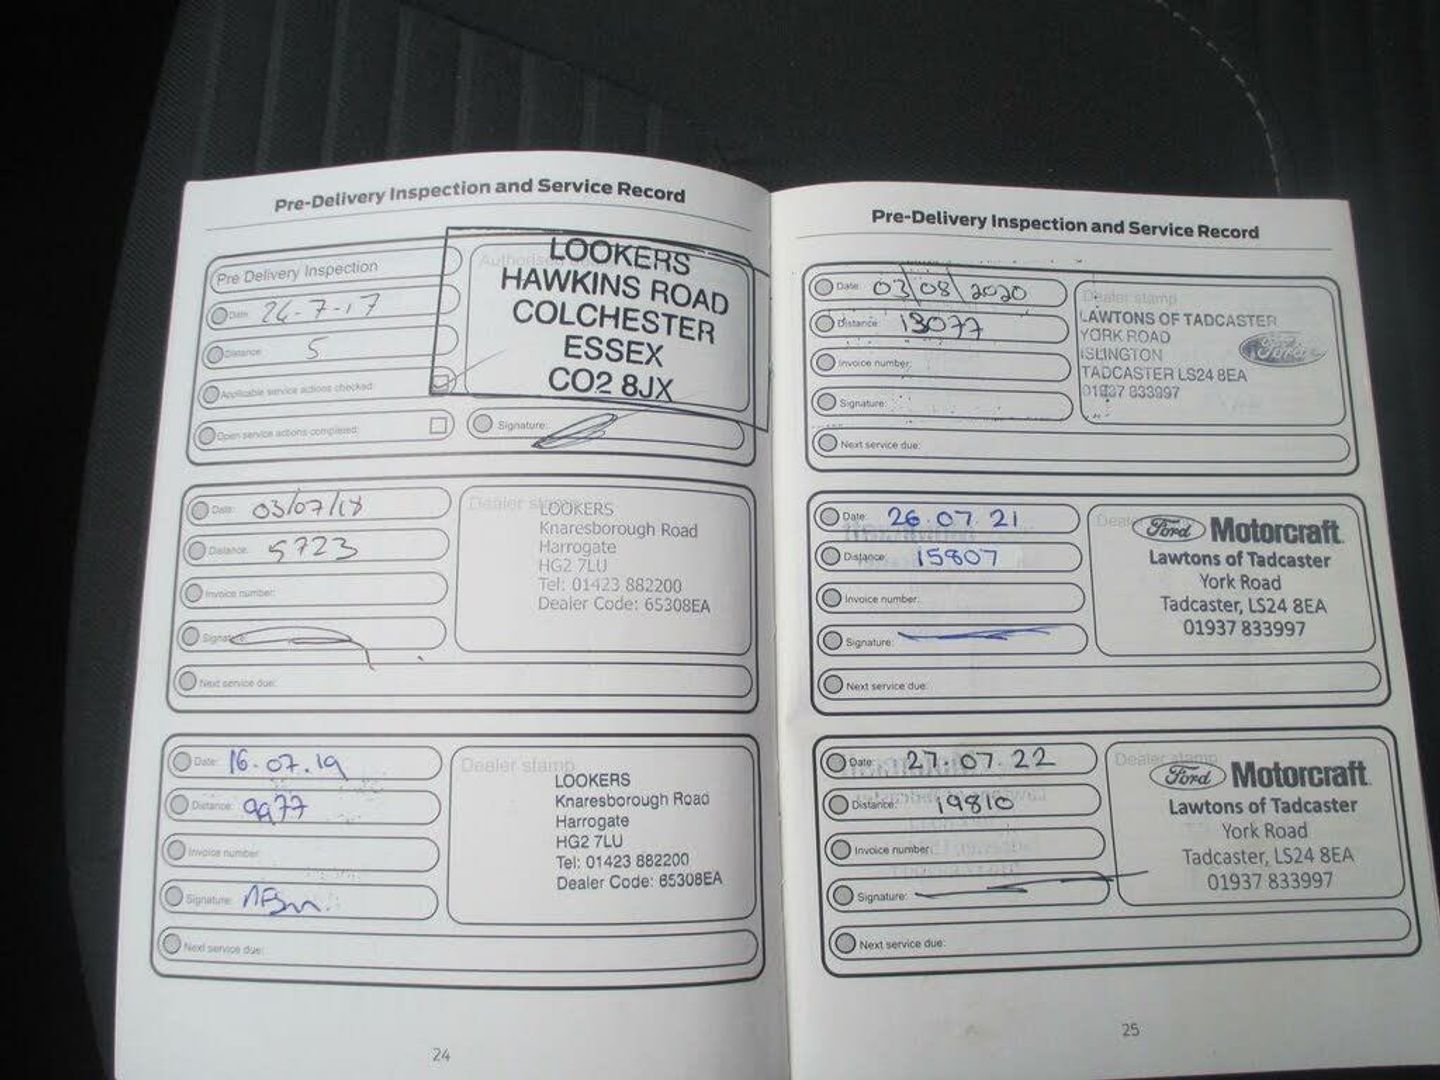 Pre-Delivery Inspection and Service Record
Pre Delivery Inspection
Date: 24-7-17
Distance: 5
Applicable service actions checked:
Open service actions completed:
Authorised
LOOKERS
HAWKINS ROAD
COLCHESTER
ESSEX
CO2 8JX
Signature:
Date: 03/07/18
Distance: 5723
Invoice number:
Signature:
Next service due:
Dealer stamp
LOOKERS
Knaresborough Road
Harrogate
HG2 7LU
Tel: 01423 882200
Dealer Code: 65308EA
Date: 16.07.19
Distance: 9977
Invoice number:
Signature:
Next service due:
Dealer stamp
LOOKERS
Knaresborough Road
Harrogate
HG2 7LU
Tel: 01423 882200
Dealer Code: 65308EA
24
Pre-Delivery Inspection and Service Record
Date: 03/08/2020
Distance: 13077
Invoice number:
Signature:
Next service due:
Dealer stamp
LAWTONS OF TADCASTER
YORK ROAD
ISLINGTON
TADCASTER LS24 8EA
01937 833997
Ford
Date: 26.07.21
Distance: 15807
Invoice number:
Signature:
Next service due:
Ford Motorcraft
Lawtons of Tadcaster
York Road
Tadcaster, LS24 8EA
01937 833997
Date: 27.07.22
Distance: 19810
Invoice number:
Signature:
Next service due:
Dealer stamp
Ford Motorcraft
Lawtons of Tadcaster
York Road
Tadcaster, LS24 8EA
01937 833997
25